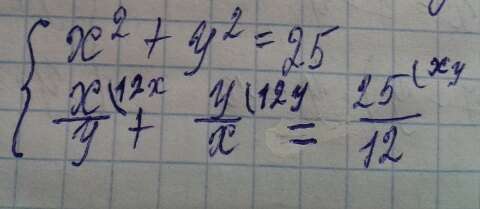 x² + y² = 25
x/y (12x + y/x (12y = 25/12 (xy